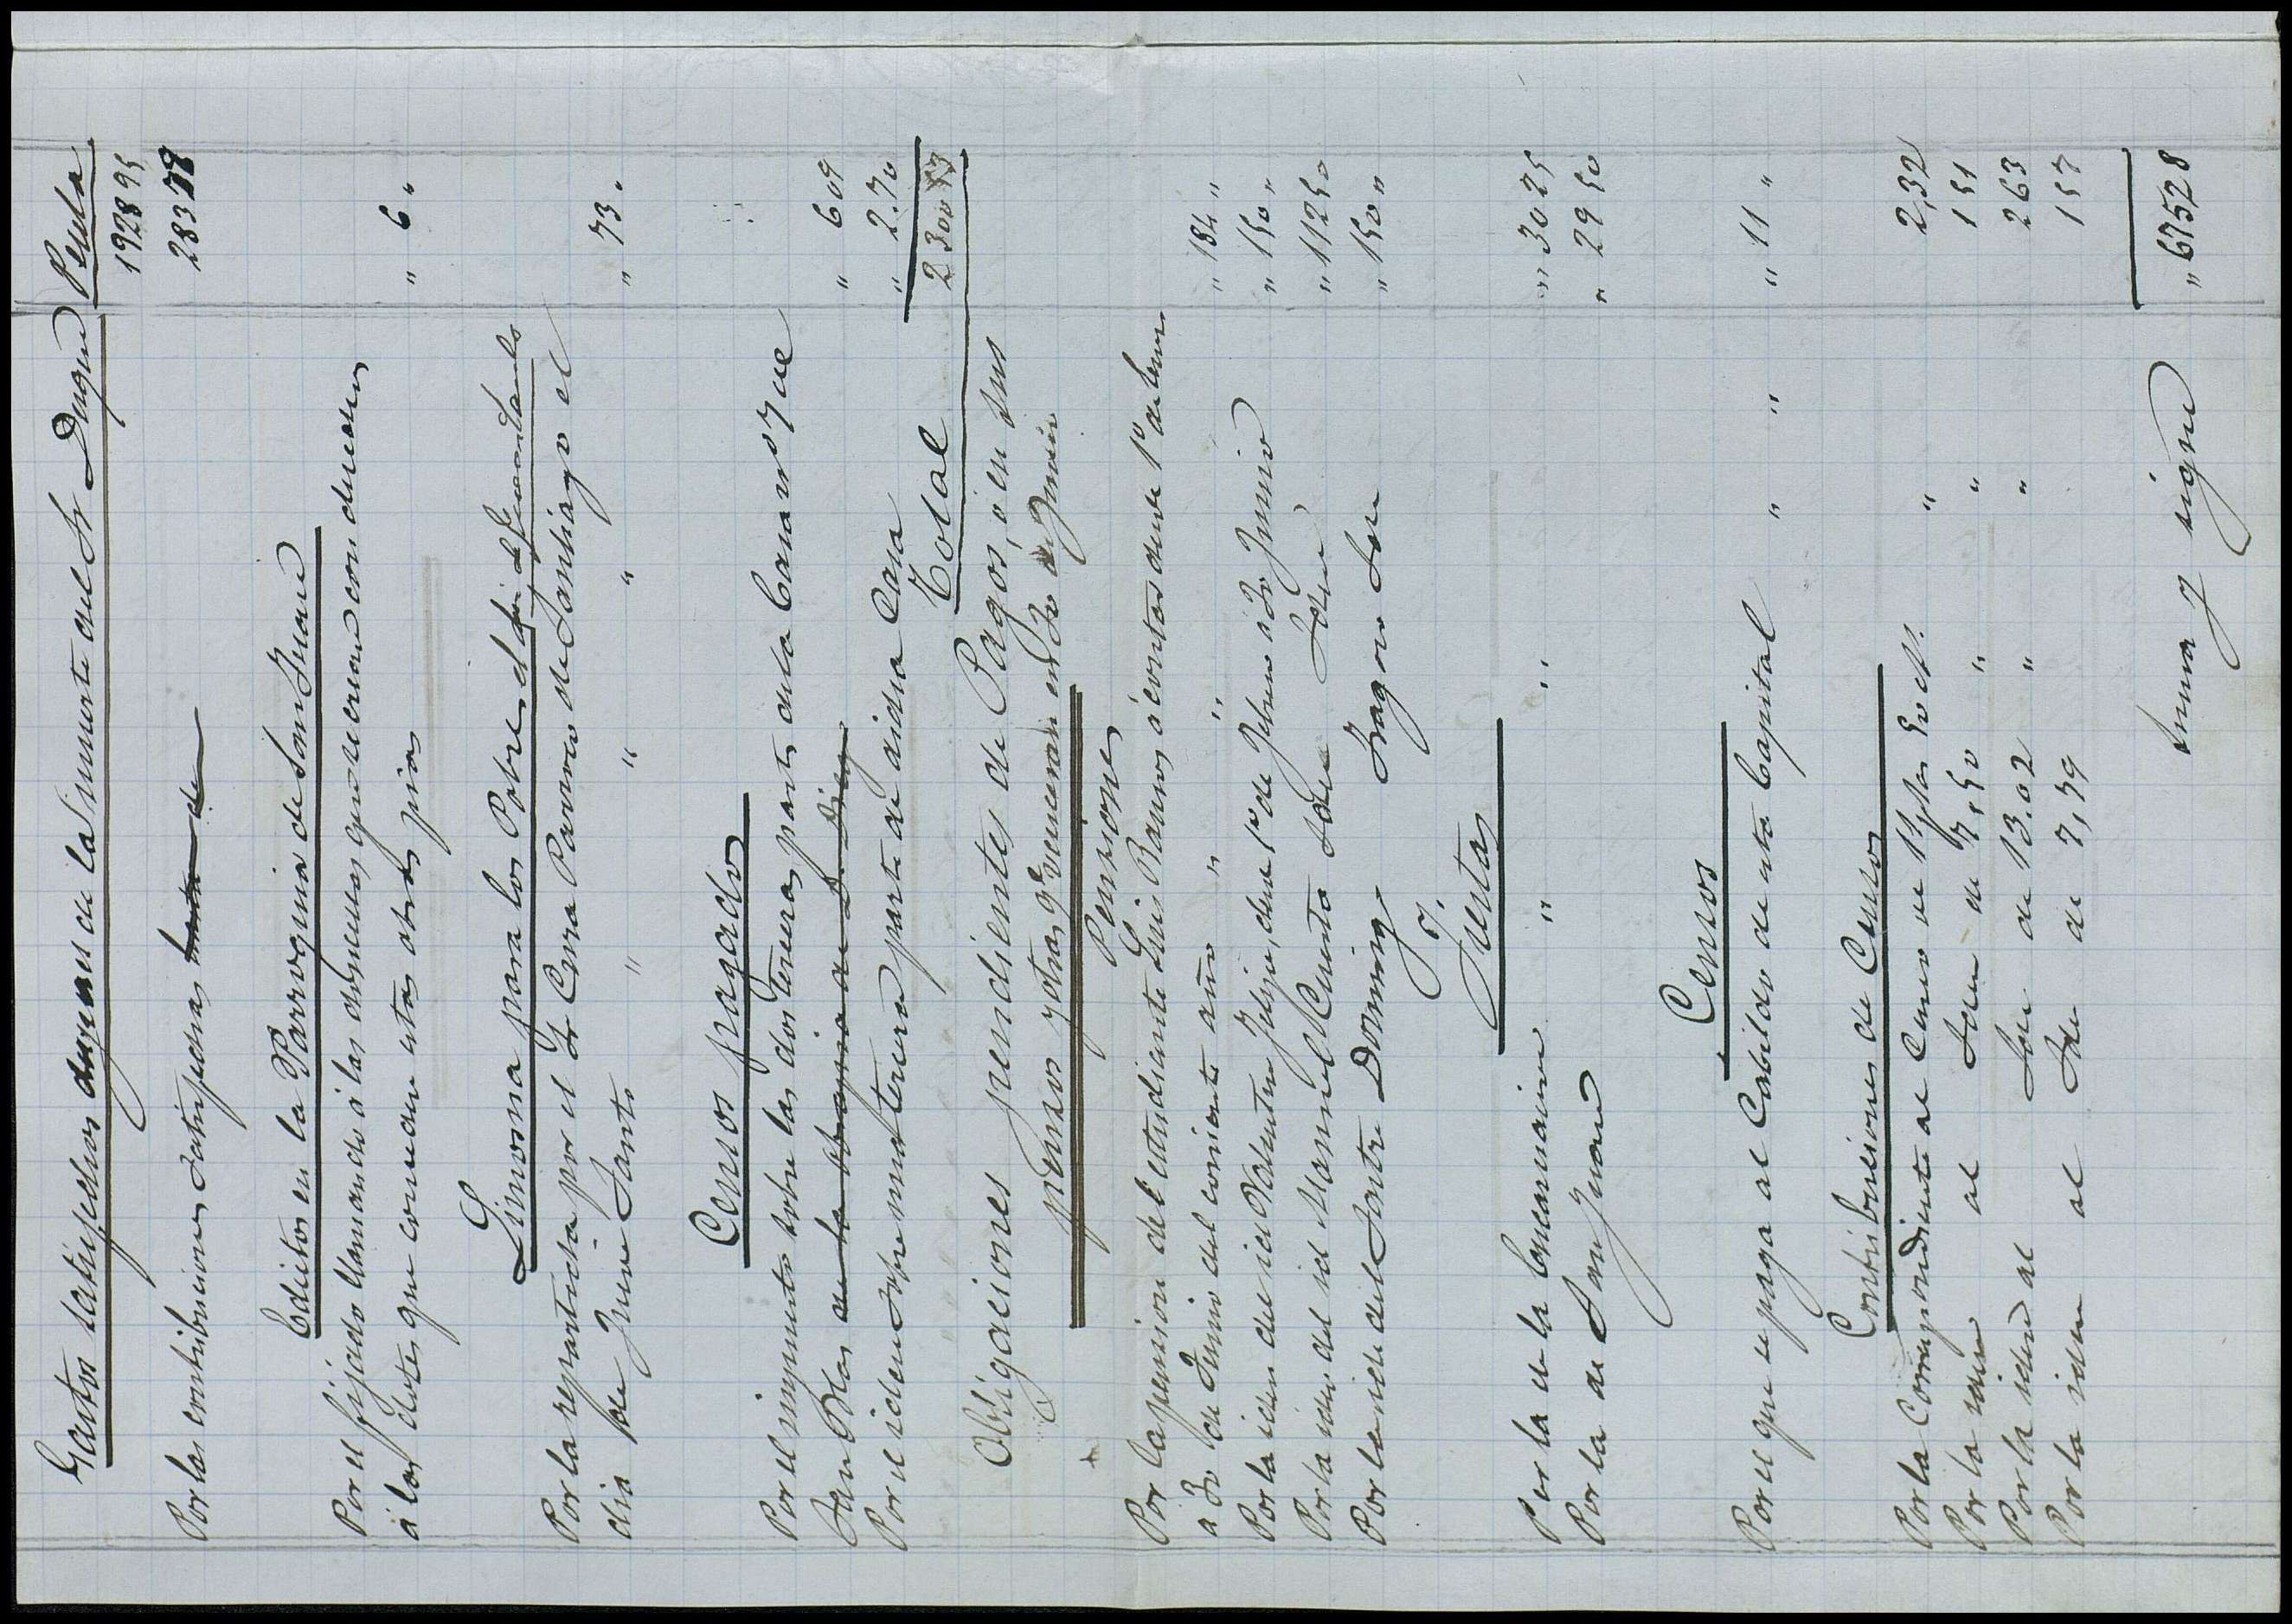 Gastos satisfechos despues de la muerte del Sr Duque Peseta
1928 95
Por las contribuciones satisfechas hasta de 283 79
Edictos en la Parroquia de San Juan
Por el fijado llamando á las que se crean con derecho
á las dotes que conceden estas obras pias " 6 "
Limosna para los Pobres
Por la repartida por el Sr Cura Parroco de Santiago el
dia de Jueve Santo " " " " 73 "
Censos pagados
Por el impuesto sobre las dos terceras partes de la Casa nº 7 de
" 6 09
Por el idem sobre una tercera parte de dicha Casa " 2.70
Total 2300 53
Obligaciones pendientes de Pagos, ó en sus
pensos y otras qe vencieran en 30 Junio
Pensiones
Por la pension del estudiante Luis Ramos á contar desde 1º de Enero
a 30 de Junio del corriente año " " " 184 "
Por la idem del id Valentin, desde 1º de Febrero á 30 Junio " 150 "
Por la idem del id Manuel Cuinto Idem Idem " 112 50
Por la idem del Santr Domingo " 150 "
Juntas
Por la de la " " " 30 25
Por la de San Juan " 29 50
Censos
Por el que se paga al Cabildo de esta Capital " " " 11 "
Contribuciones de Censos
Por la Correspondiente al Censo de 11 ptas 50 cts. " 2,32
Por la idem al Idem de 7,50 " " 1 51
Por la idem al Idem de 13.02 " " 2 63
Por la idem al Idem de 7,79 1 57
Suma y sigue " 675 28